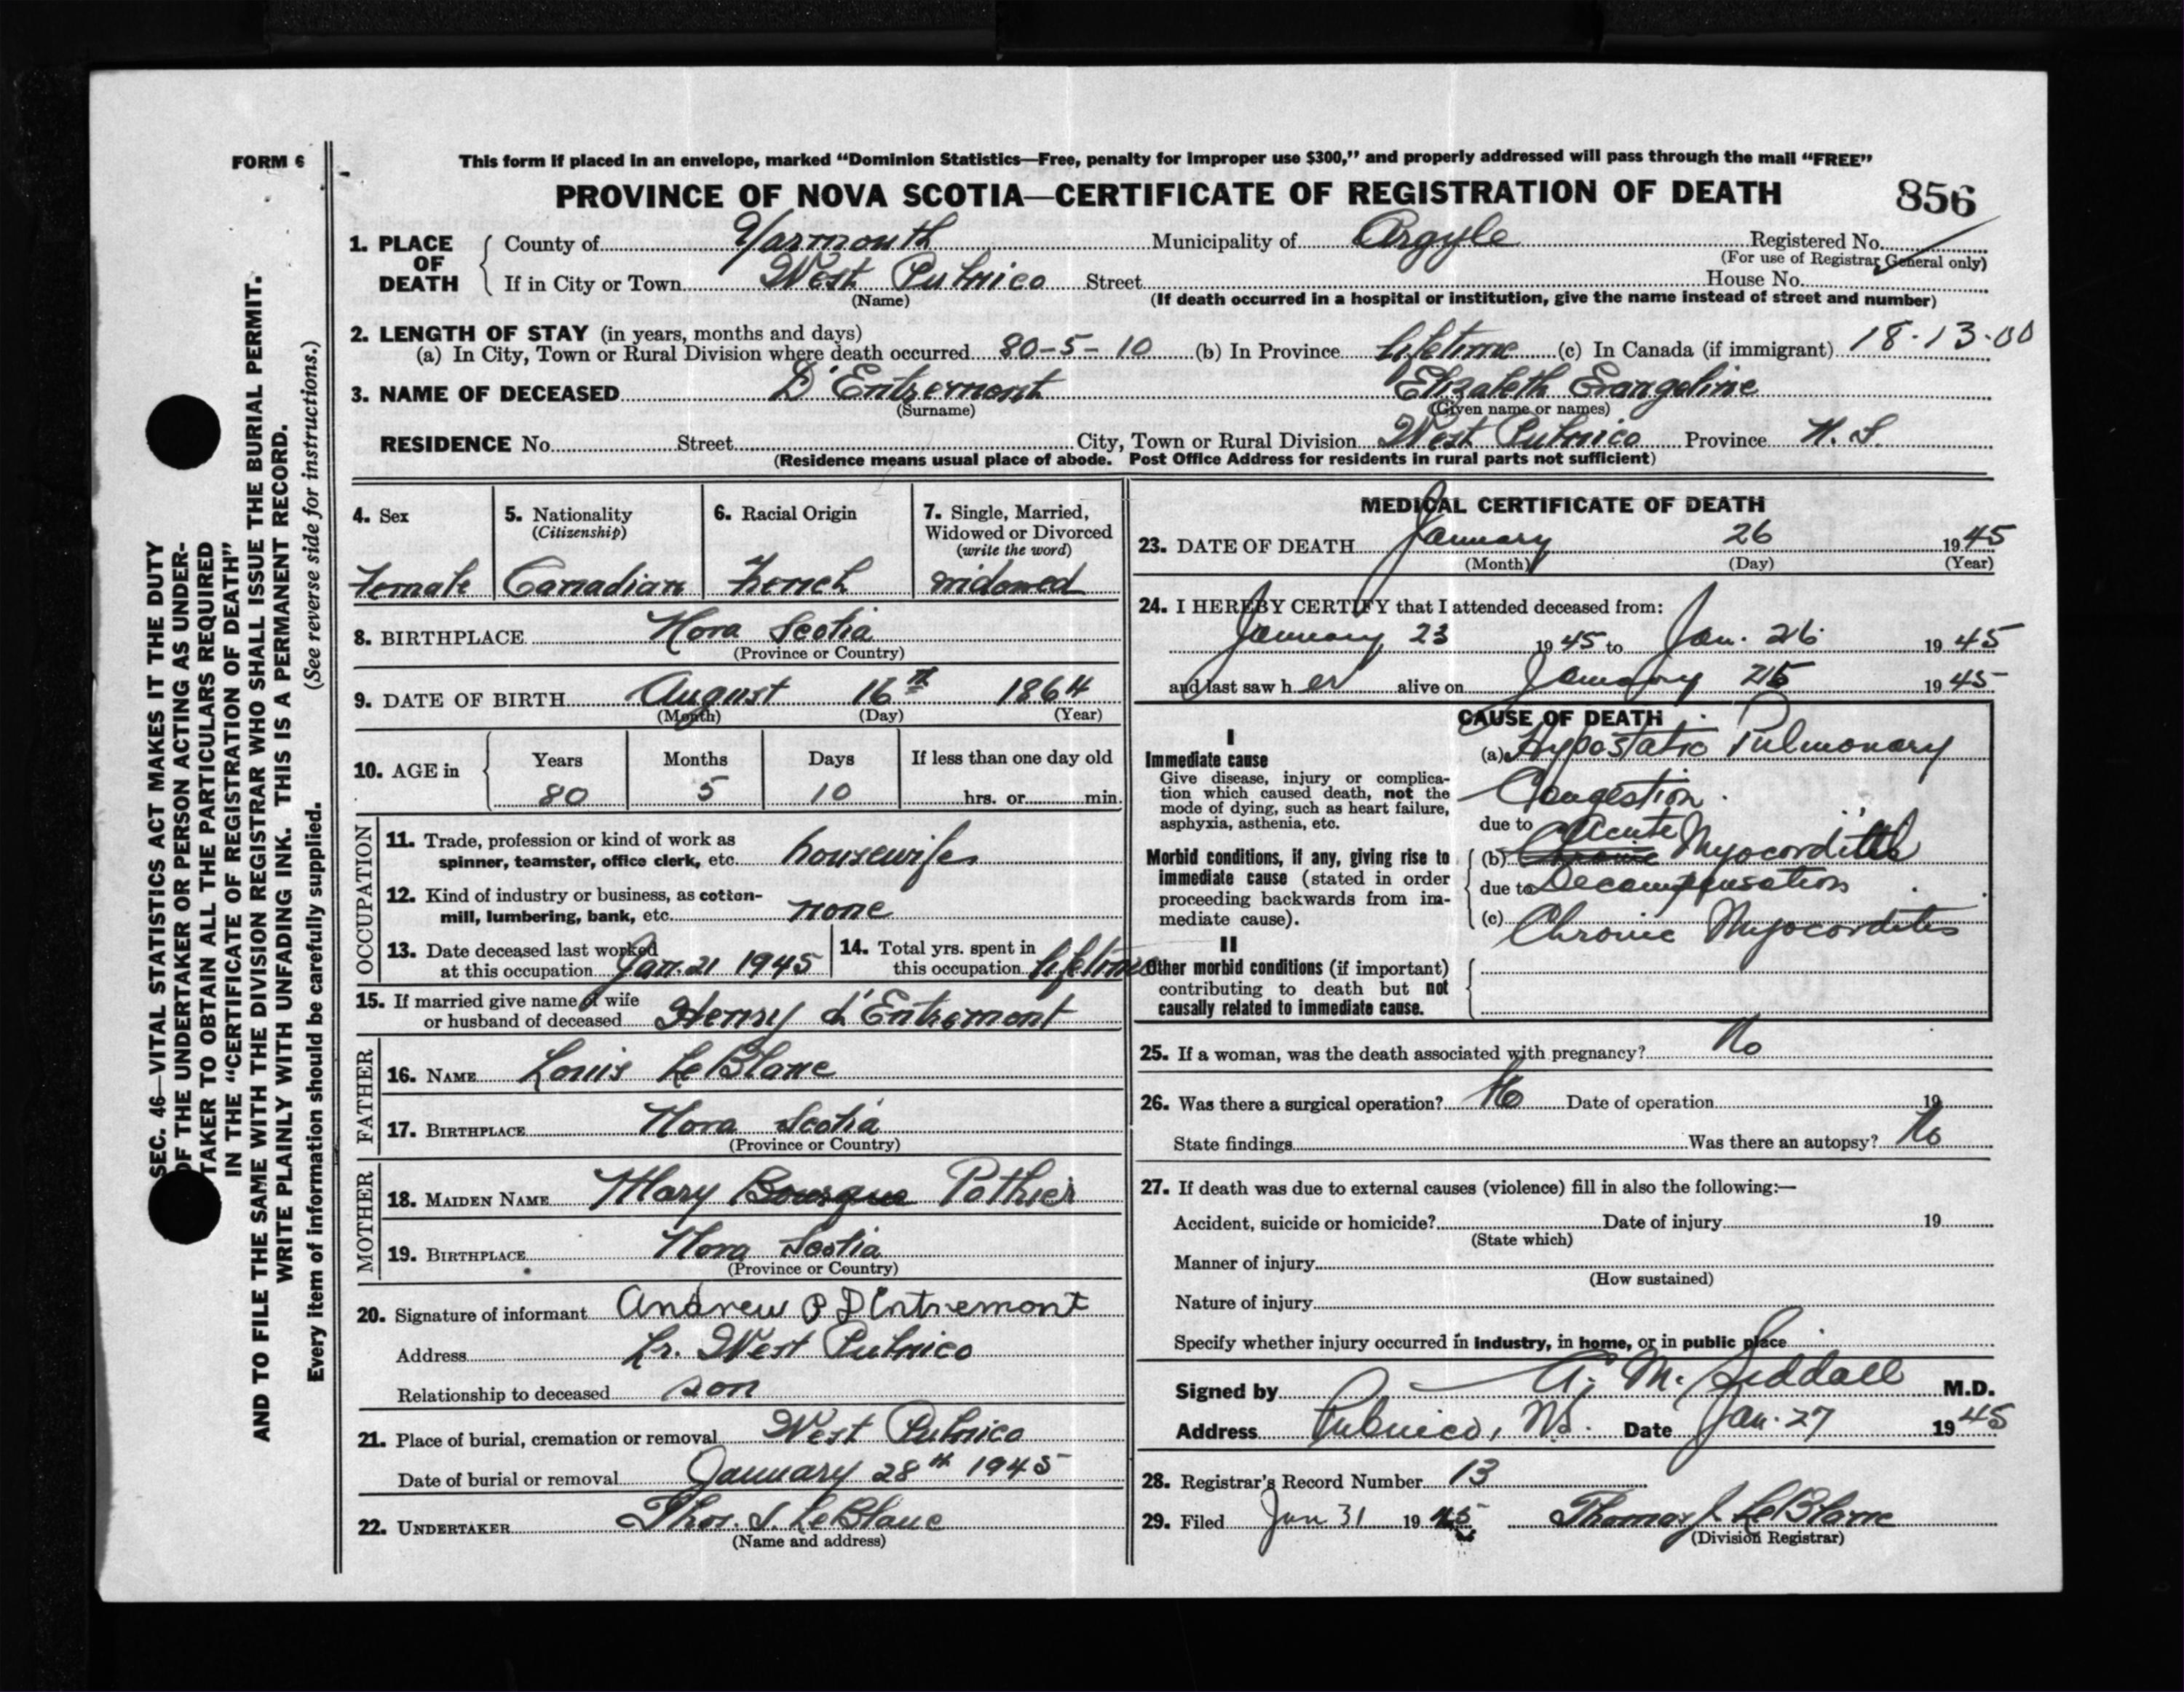 FORM 6
This form if placed in an envelope, marked “Dominion Statistics—Free, penalty for improper use $300,” and properly addressed will pass through the mail “FREE”
PROVINCE OF NOVA SCOTIA—CERTIFICATE OF REGISTRATION OF DEATH 856
1. PLACE OF DEATH
County of Yarmouth Municipality of Argyle Registered No.
(For use of Registrar General only)
If in City or Town West Pubnico Street House No.
(Name) (If death occurred in a hospital or institution, give the name instead of street and number)
2. LENGTH OF STAY (in years, months and days)
(a) In City, Town or Rural Division where death occurred 80-5-10 (b) In Province Lifetime (c) In Canada (if immigrant) 18-13-00
3. NAME OF DECEASED D'Entremont Elizabeth Evangeline
(Surname) (Given name or names)
RESIDENCE No. Street City, Town or Rural Division West Pubnico Province N.S.
(Residence means usual place of abode. Post Office Address for residents in rural parts not sufficient)
4. Sex
Female
5. Nationality
(Citizenship)
Canadian
6. Racial Origin
French
7. Single, Married,
Widowed or Divorced
(write the word)
widowed
8. BIRTHPLACE Nova Scotia
(Province or Country)
9. DATE OF BIRTH August 16th 1864
(Month) (Day) (Year)
10. AGE in Years Months Days If less than one day old
80 5 10 hrs. or min.
OCCUPATION
11. Trade, profession or kind of work as
spinner, teamster, office clerk, etc. housewife
12. Kind of industry or business, as cotton-
mill, lumbering, bank, etc. none
13. Date deceased last worked
at this occupation Jan. 21 1945
14. Total yrs. spent in
this occupation lifetime
15. If married give name of wife
or husband of deceased Henry d'Entremont
FATHER
16. NAME Louis LeBlanc
17. BIRTHPLACE Nova Scotia
(Province or Country)
MOTHER
18. MAIDEN NAME Mary Bourque Pothier
19. BIRTHPLACE Nova Scotia
(Province or Country)
20. Signature of informant Andrew P D'Entremont
Address Lr. West Pubnico
Relationship to deceased son
21. Place of burial, cremation or removal West Pubnico
Date of burial or removal January 28th 1945
22. UNDERTAKER Thos. J. LeBlanc
(Name and address)
MEDICAL CERTIFICATE OF DEATH
23. DATE OF DEATH January 26 1945
(Month) (Day) (Year)
24. I HEREBY CERTIFY that I attended deceased from:
January 23 1945 to Jan. 26 1945
and last saw her alive on January 1945
CAUSE OF DEATH
I
Immediate cause
Give disease, injury or complica-
tion which caused death, not the
mode of dying, such as heart failure,
asphyxia, asthenia, etc.
(a) Hypostatic Pulmonary
Congestion
due to
Morbid conditions, if any, giving rise to
immediate cause (stated in order
proceeding backwards from im-
mediate cause).
Acute
(b) Chronic Myocarditis
due to Decompensation
(c) Chronic Myocarditis
II
Other morbid conditions (if important)
contributing to death but not
causally related to immediate cause.
25. If a woman, was the death associated with pregnancy? No
26. Was there a surgical operation? No Date of operation 19
State findings Was there an autopsy? No
27. If death was due to external causes (violence) fill in also the following:—
Accident, suicide or homicide? Date of injury 19
(State which)
Manner of injury
(How sustained)
Nature of injury
Specify whether injury occurred in industry, in home, or in public place
Signed by A. M. Siddall M.D.
Address Pubnico, N.S. Date Jan. 27 1945
28. Registrar's Record Number 13
29. Filed Jan 31 1945 Thomas J LeBlanc
(Division Registrar)
SEC. 46—VITAL STATISTICS ACT MAKES IT THE DUTY
OF THE UNDERTAKER OR PERSON ACTING AS UNDER-
TAKER TO OBTAIN ALL THE PARTICULARS REQUIRED
IN THE “CERTIFICATE OF REGISTRATION OF DEATH”
AND TO FILE THE SAME WITH THE DIVISION REGISTRAR WHO SHALL ISSUE THE BURIAL PERMIT.
WRITE PLAINLY WITH UNFADING INK. THIS IS A PERMANENT RECORD.
Every item of information should be carefully supplied. (See reverse side for instructions.)